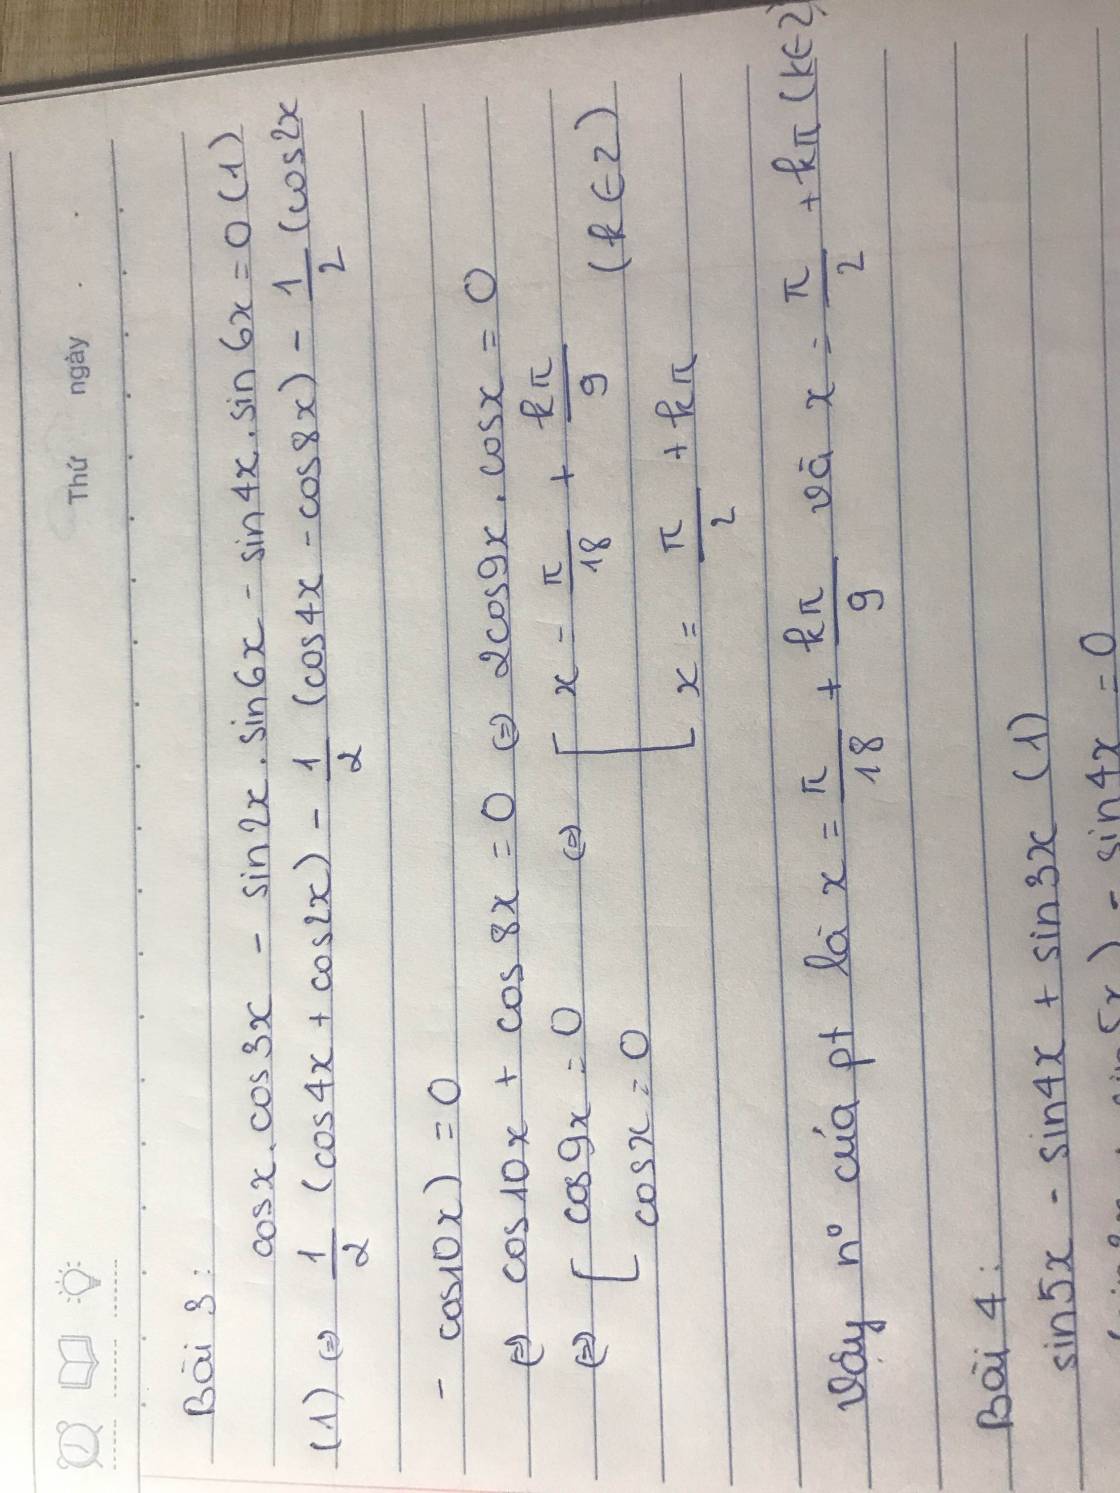 Thứ ngày
Bài 3:
cosx.cos3x - sin2x.sin6x - sin4x.sin6x = 0 (1)
(1) ⇔ 1/2 (cos4x + cos2x) - 1/2 (cos4x - cos8x) - 1/2 (cos2x
- cos10x) = 0
⇔ cos10x + cos8x = 0 ⇔ 2cos9x.cosx = 0
⇔ [ cos9x = 0 ⇔ [ x = π/18 + kπ/9 (k∈Z)
cosx = 0 x = π/2 + kπ
Vậy n° của pt là x = π/18 + kπ/9 và x = π/2 + kπ (k∈Z)
Bài 4:
sin5x - sin4x + sin3x (1)
) - sin4x = 0